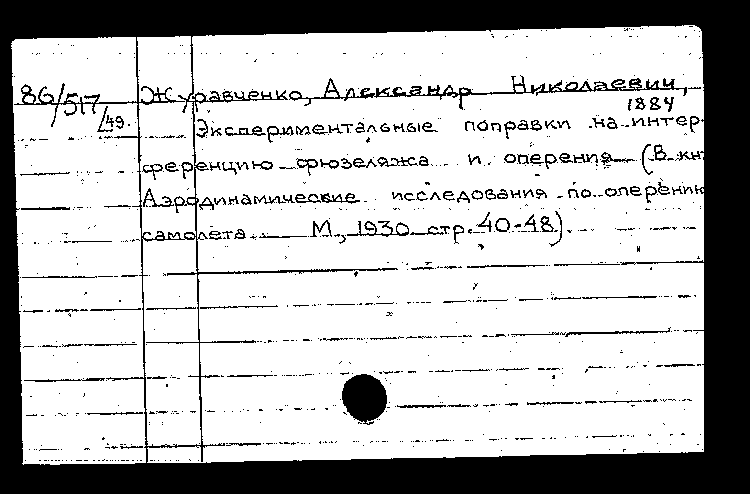 86/517/49. Журавченко, Александр Николаевич,
1884
Экспериментальные поправки на интер-
ференцию фюзеляжа и оперения (В кн:
Аэродинамические исследования по оперению
самолета. М., 1930 стр. 40-48).